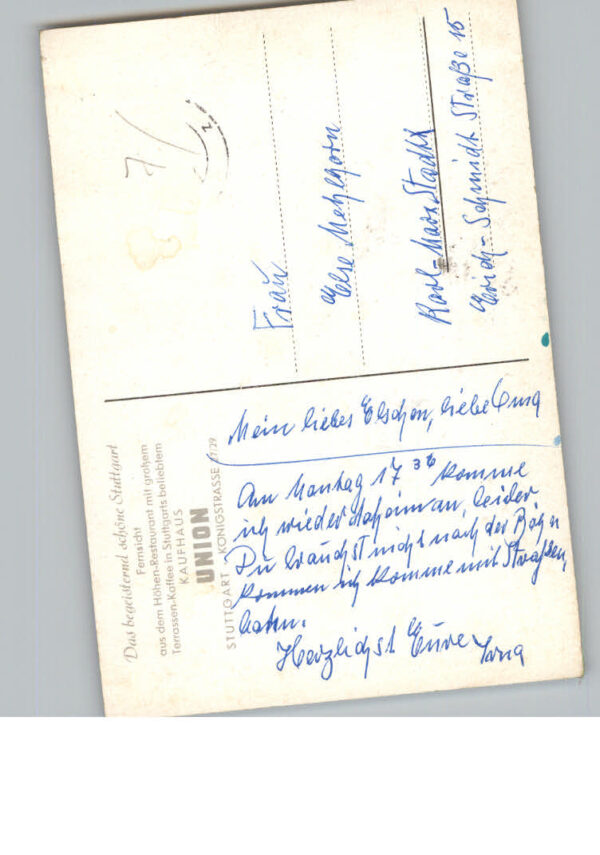 Das begeisternd schöne Stuttgart
Fernsicht
aus dem Höhen-Restaurant mit großem
Terrassen-Kaffee in Stuttgarts beliebtem
KAUFHAUS
UNION
STUTTGART KÖNIGSTRASSE 27/29
Mein liebes Elschen, liebe
Am Montag 17 36 komme
ich wieder daheim an, leider
Du brauchst nicht nach der Bahn
kommen ich komme mit Straßen
bahn.
Herzlichst Eure
Frau
Else Mehlhorn
Karl-Marx-Stadt
Erich-Schmidt Straße 15